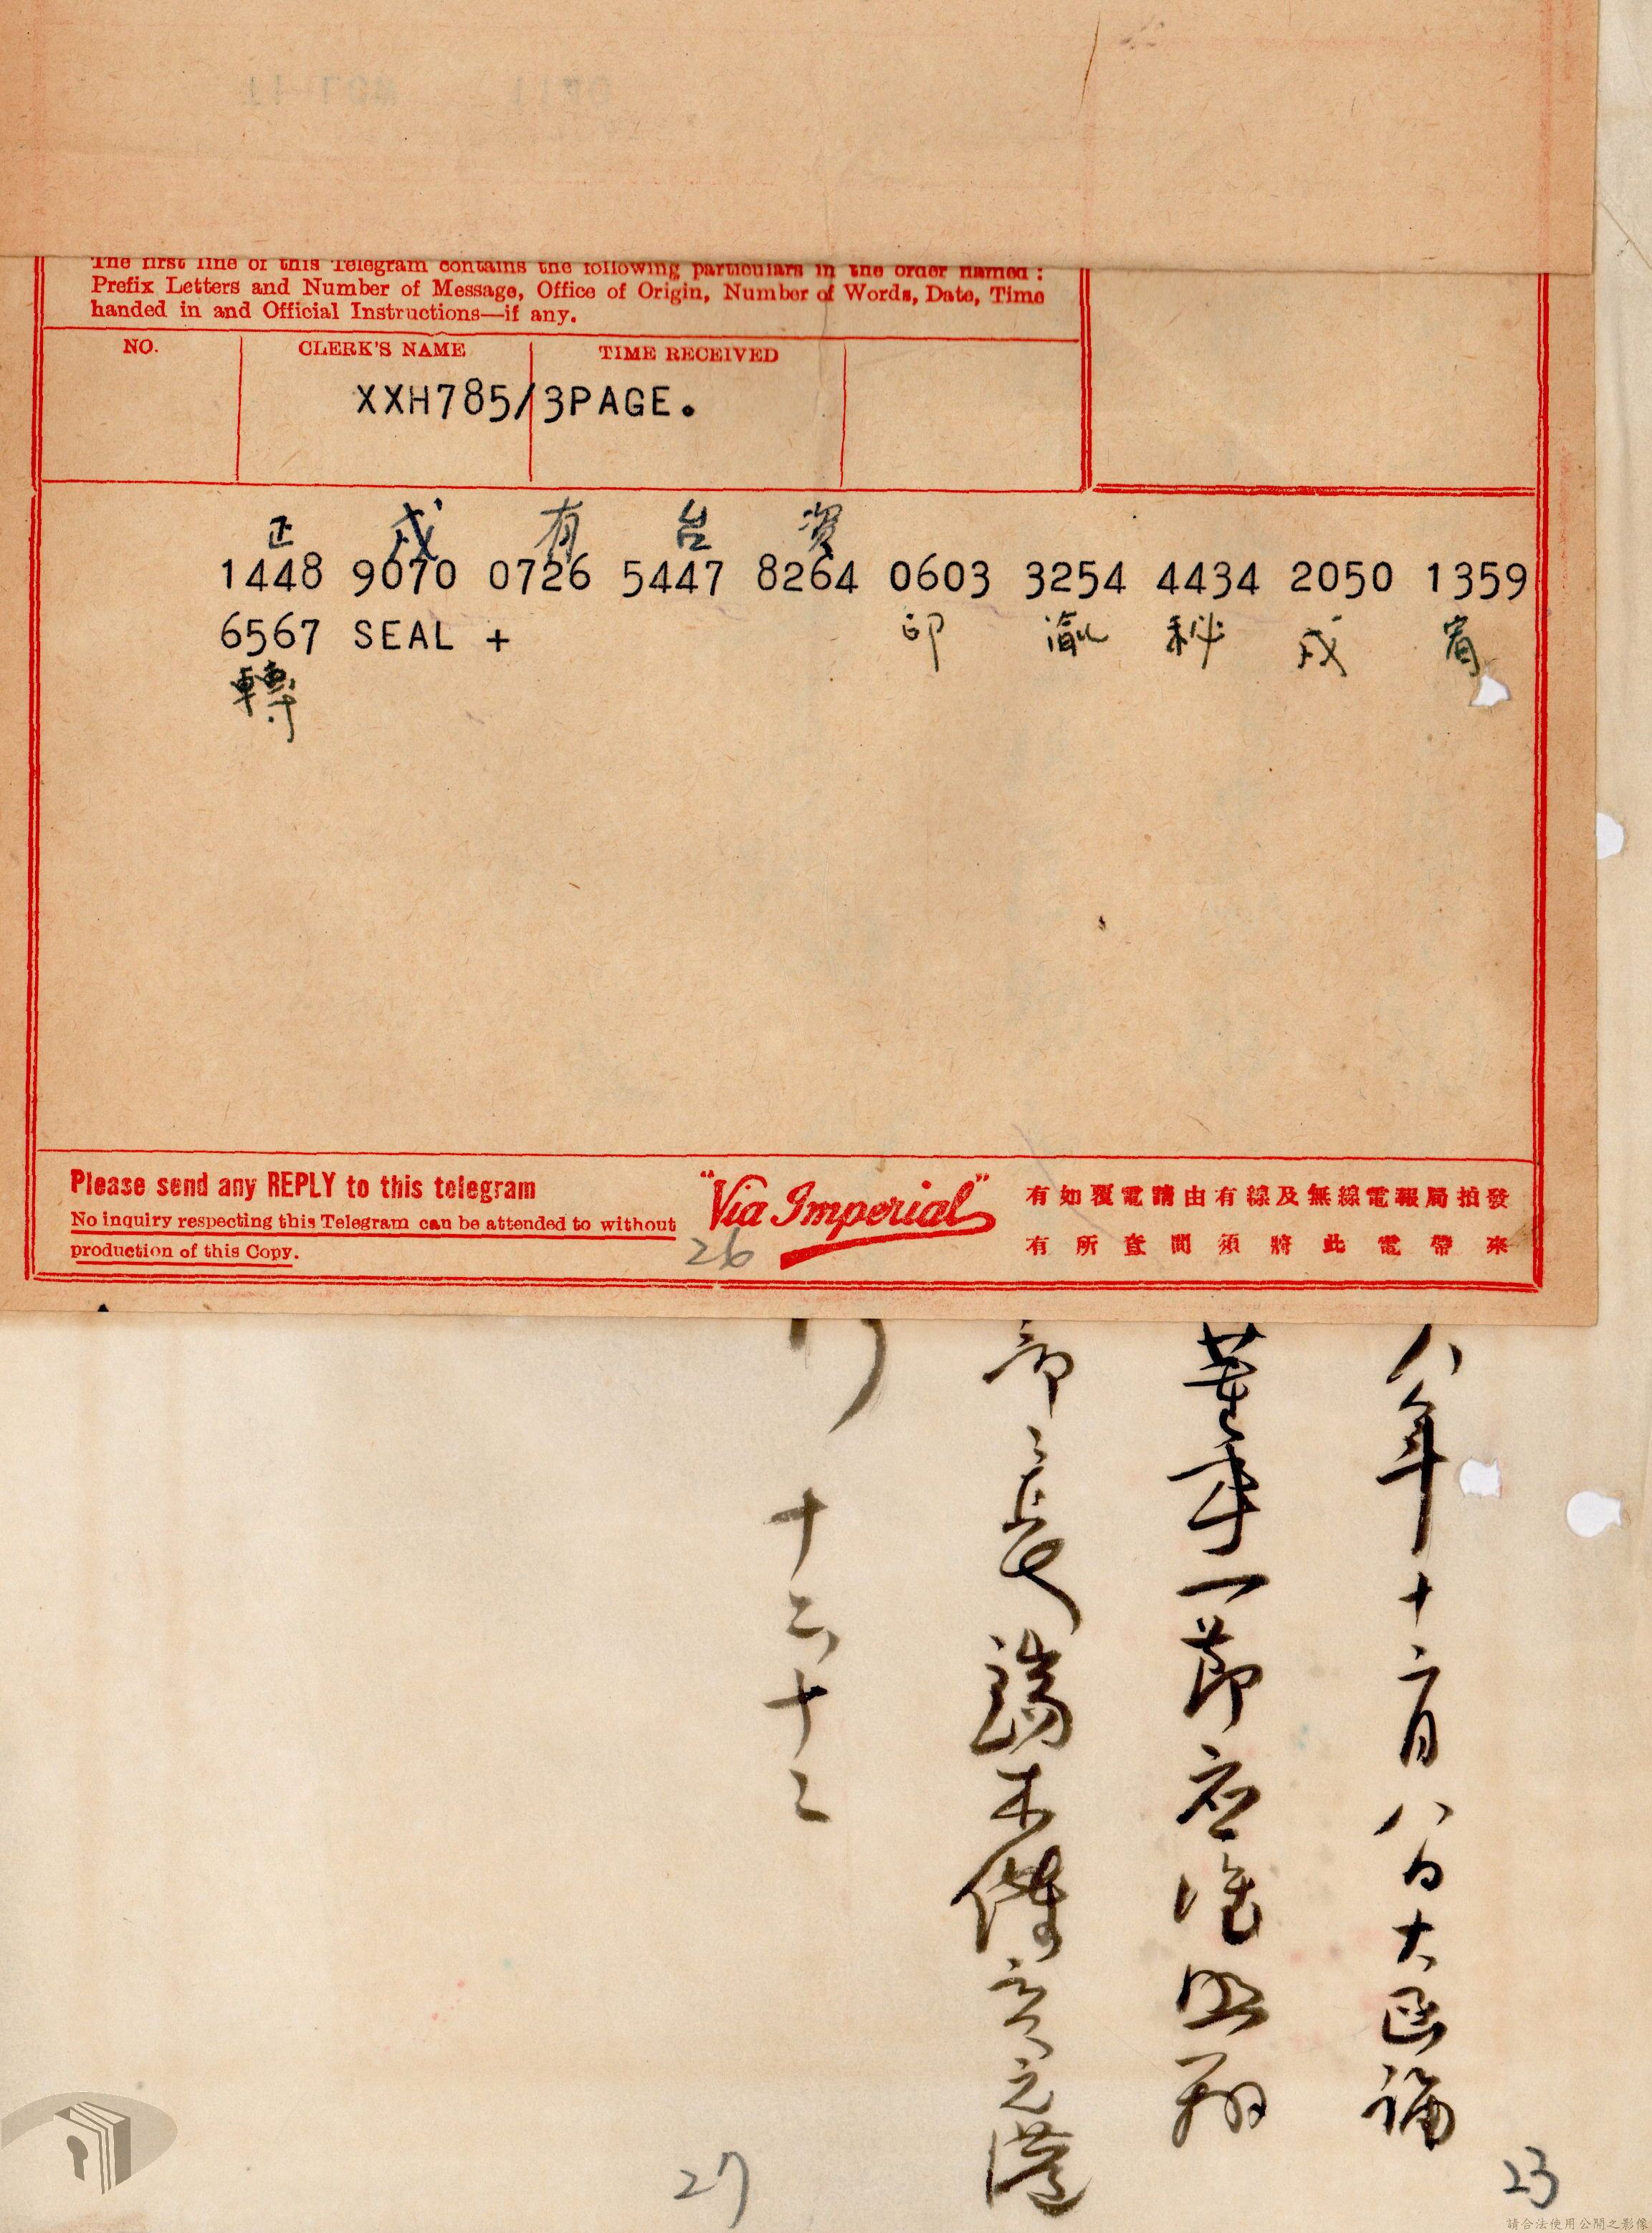 The first line of this Telegram contains the following particulars in the order named:
Prefix Letters and Number of Message, Office of Origin, Number of Words, Date, Time
handed in and Official Instructions—if any.
NO.
CLERK'S NAME
TIME RECEIVED
XXH785/3PAGE.
正 戍 有 台 資
1448 9070 0726 5447 8264 0603 3254 4434 2050 1359
6567 SEAL +
印 瀛 秘 戍 宥
轉
Please send any REPLY to this telegram
No inquiry respecting this Telegram can be attended to without
production of this Copy.
"Via Imperial"
26
有如覆電請由有線及無線電報局拍發
有所查問須將此電帶來
八年十二月八日大函誦
董事一節應准照
部長端木傑
十二、十二
27
23
請合法使用公開之影像